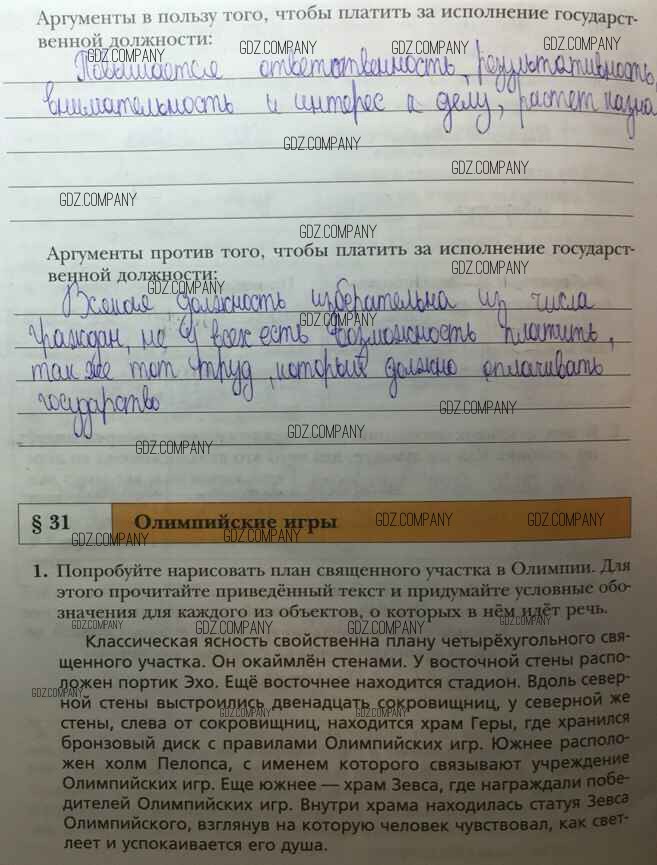 Аргументы в пользу того, чтобы платить за исполнение государст-
венной должности:
GDZ.COMPANY GDZ.COMPANY GDZ.COMPANY GDZ.COMPANY
Повышается ответственность, результативность,
внимательность и интерес к делу, растет казна
GDZ.COMPANY
GDZ.COMPANY
GDZ.COMPANY
GDZ.COMPANY
Аргументы против того, чтобы платить за исполнение государст-
венной должности:
GDZ.COMPANY
GDZ.COMPANY
Всякая должность избирательна из числа
GDZ.COMPANY
граждан, не у всех есть возможность платить,
так же тот труд, который должно оплачивать
государство
GDZ.COMPANY
GDZ.COMPANY
GDZ.COMPANY
§ 31 Олимпийские игры
GDZ.COMPANY GDZ.COMPANY
GDZ.COMPANY GDZ.COMPANY
1. Попробуйте нарисовать план священного участка в Олимпии. Для
этого прочитайте приведённый текст и придумайте условные обо-
значения для каждого из объектов, о которых в нём идёт речь.
GDZ.COMPANY GDZ.COMPANY GDZ.COMPANY
Классическая ясность свойственна плану четырёхугольного свя-
щенного участка. Он окаймлён стенами. У восточной стены распо-
ложен портик Эхо. Ещё восточнее находится стадион. Вдоль север-
GDZ.COMPANY
ной стены выстроились двенадцать сокровищниц, у северной же
GDZ.COMPANY GDZ.COMPANY
стены, слева от сокровищниц, находится храм Геры, где хранился
бронзовый диск с правилами Олимпийских игр. Южнее располо-
жен холм Пелопса, с именем которого связывают учреждение
Олимпийских игр. Еще южнее — храм Зевса, где награждали побе-
дителей Олимпийских игр. Внутри храма находилась статуя Зевса
Олимпийского, взглянув на которую человек чувствовал, как свет-
леет и успокаивается его душа.